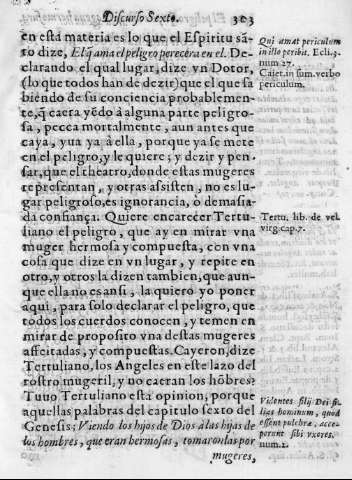 Discurso Sexto. 303
en esta materia es lo que el Espiritu sã-
to dize, El q̃ ama el peligro perecera en el. De-
clarando el qual lugar, dize vn Dotor,
(lo que todos han de dezir) que el que sa
biendo de su conciencia probablemen-
te, q̃ caera yẽdo à alguna parte peligro-
sa, pecca mortalmente, aun antes que
caya, y ua ya à ella, porque ya se mete
en el peligro, y le quiere; y dezir y pen-
sar, que el theatro, donde estas mugeres
representan, y otras assisten, no es lu-
gar peligroso, es ignorancia, ò demasia-
da confiança. Quiere encarecer Tertu-
liano el peligro, que ay en mirar vna
muger hermosa y compuesta, con vna
cosa que dize en vn lugar, y repite en
otro, y otros la dizen tambien, que aun-
que ella no es ansi, la quiero yo poner
aqui, para solo declarar el peligro, que
todos los cuerdos conocen, y temen en
mirar de proposito vna destas mugeres
affeitadas, y compuestas. Cayeron, dize
Tertuliano, los Angeles en este lazo del
rostro mugeril, y no caeran los hõbres?
Tuuo Tertuliano esta opinion, porque
aquellas palabras del capitulo sexto del
Genesis; Viendo los hijos de Dios à las hijas de
los hombres, que eran hermosas, tomaronlas por
mugeres,
Qui amat periculum
in illo peribit. Ecli. 3.
num 27.
Caiet. in sum. verbo
periculum.
Tertu. lib. de vel.
virg. cap. 7.
Videntes filij Dei fi-
lias hominum, quod
essent pulchræ, acce-
perunt sibi vxores.
num. 2.